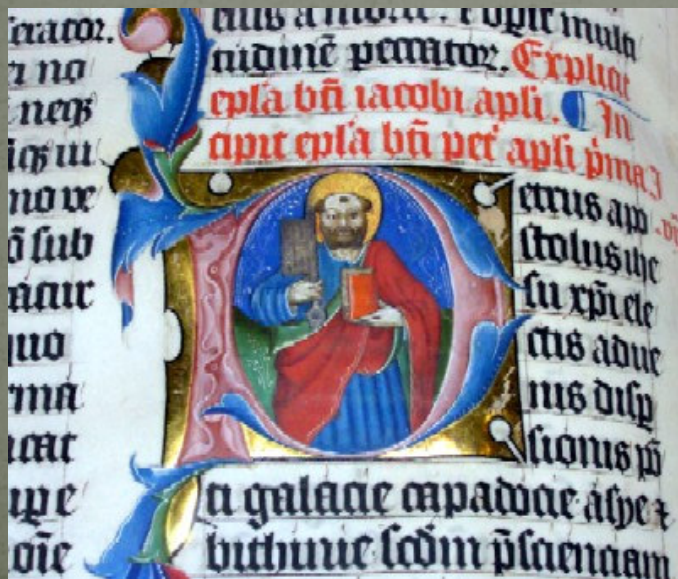 no
neqꝫ
mo ve
õ sub
quo
rma
icat
eius a morte. ⁊ opit multi
tudinē peccator. Explicit
epl̄a bt̄i iacobi apl̄i. In
cipit epl̄a bt̄i pet' apl̄i p̄ma
etrus apo
stolus ihe
su xp̄i ele
ctis adue
nis disp
sionis pō
ti galacie capadocie asye ⁊
bithinie scd̄m p̄scienciam